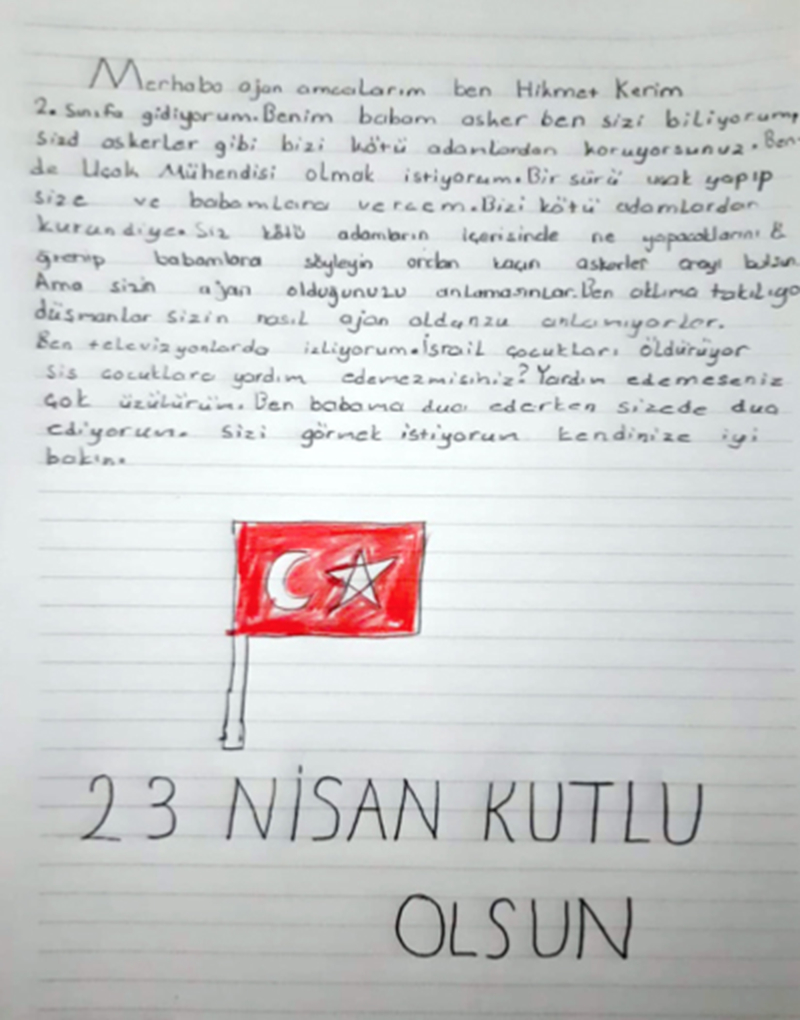 Merhaba ajan amcalarım ben Hikmet Kerim
2. sınıfa gidiyorum. Benim babam asker ben sizi biliyorum,
sizd askerler gibi bizi kötü adamlardan koruyorsunuz. Ben
de Uçak Mühendisi olmak istiyorum. Bir sürü uçak yapıp
size ve babamlara vercem. Bizi kötü adamlardan
kurundiye. Siz kötü adamların içerisinde ne yapacaklarını ö
ğrenip babamlara söyleyin ordan kaçın askerler orayı bulsun
Ama sizin ajan olduğunuzu anlamasınlar. Ben aklıma takılıyo
düşmanlar sizin nasıl ajan oldunzu anlamıyorlar.
Ben televizyonlarda izliyorum. İsrail çocukları öldürüyor
sis çocuklara yardım edemezmisiniz? Yardım edemeseniz
çok üzülürüm. Ben babama dua ederken sizede dua
ediyorum. sizi görmek istiyorum kendinize iyi
bakın.
23 NİSAN KUTLU
OLSUN